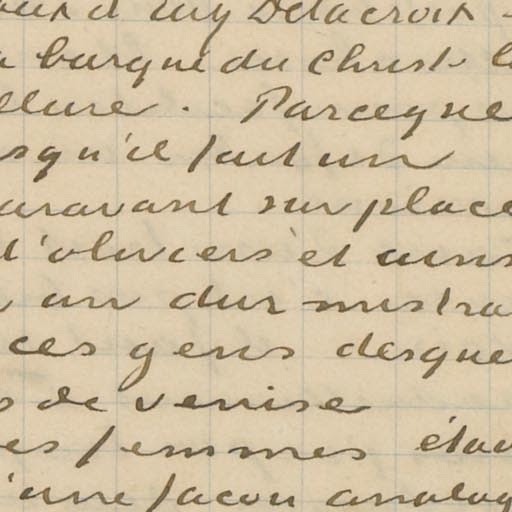 Delacroix
barque du Christ. l
llure. Parceque
squ'il faut un
aravant sur place
d'oliviers et ains
un dur mistra
ces gens desque
s de venise
es femmes étai
'une facon analog